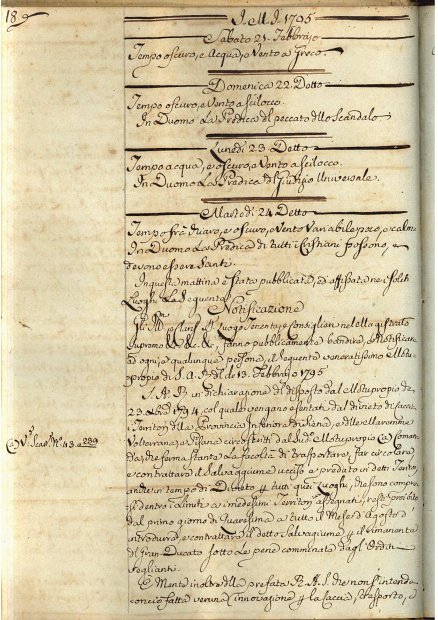 189
I. M. I. 1795
Sabato 21. Febbraio
Tempo oscuro, e Acqua, e Vento a Greco.
Domenica 22. Detto
Tempo oscuro, e Vento a scilocco.
In Duomo La Predica del peccato dello Scandalo
Lunedì 23. Detto
Tempo acqua, e oscuro, e Vento a scilocco.
In Duomo La Predica del Giudizio Universale.
Martedì 24. Detto
Tempo frà chiaro, e oscuro, Vento Variabile, e
In Duomo La Predica di tutti i Cristiani possono, e
devono essere Santi.
In questa mattina è stata pubblicata, ed affissata nei soliti
Luoghi La seguente
Notificazione
Luogo Tenente e Consiglieri nel
Supremo &c. &c. &c. fanno pubblicamente bandire, e Notificare
ad ogni, e qualunque persona, il seguente veneratissimo Motu
proprio di S. A. R. del dì 13. Febbraio 1795
S. A. R. in dichiarazione del disposto dal Motuproprio de
23. 1794, col quale vengono esentati dal divieto di caccia
Territori della Provincia Inferiore di Siena, e delle Maremme
Volterrana, e Pisana circoscritti dal sud.º Motuproprio Comanda
che ferma stante La facoltà di trasportare, far circolare
e contrattare il Salvaggiume ucciso e predato in detti Territori
anche in tempo di Divieto per tutti quei Luoghi, che sono compre
si dentro i Limiti a i medesimi Territori assegnati, resti proibito
dal primo giorno di Quaresima a tutto il Mese d'Agosto d'
introdurre, e contrattare il detto Salvaggiume per il rimanente
del Gran-Ducato sotto Le pene comminate dagl'Ordini
Veglianti.
Mente inoltre della prefata R. A. S. che non s'intenda
con ciò fatta veruna innovazione per la caccia, trasporto, e